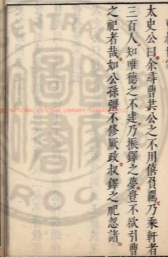 太史公曰余尋曹共公之不用僖負羈乃乘軒者
三百人知唯德之不建及振鐸之夢豈不欲引曹
之祀者哉如公孫彊不脩厥政叔鐸之祀忽諸